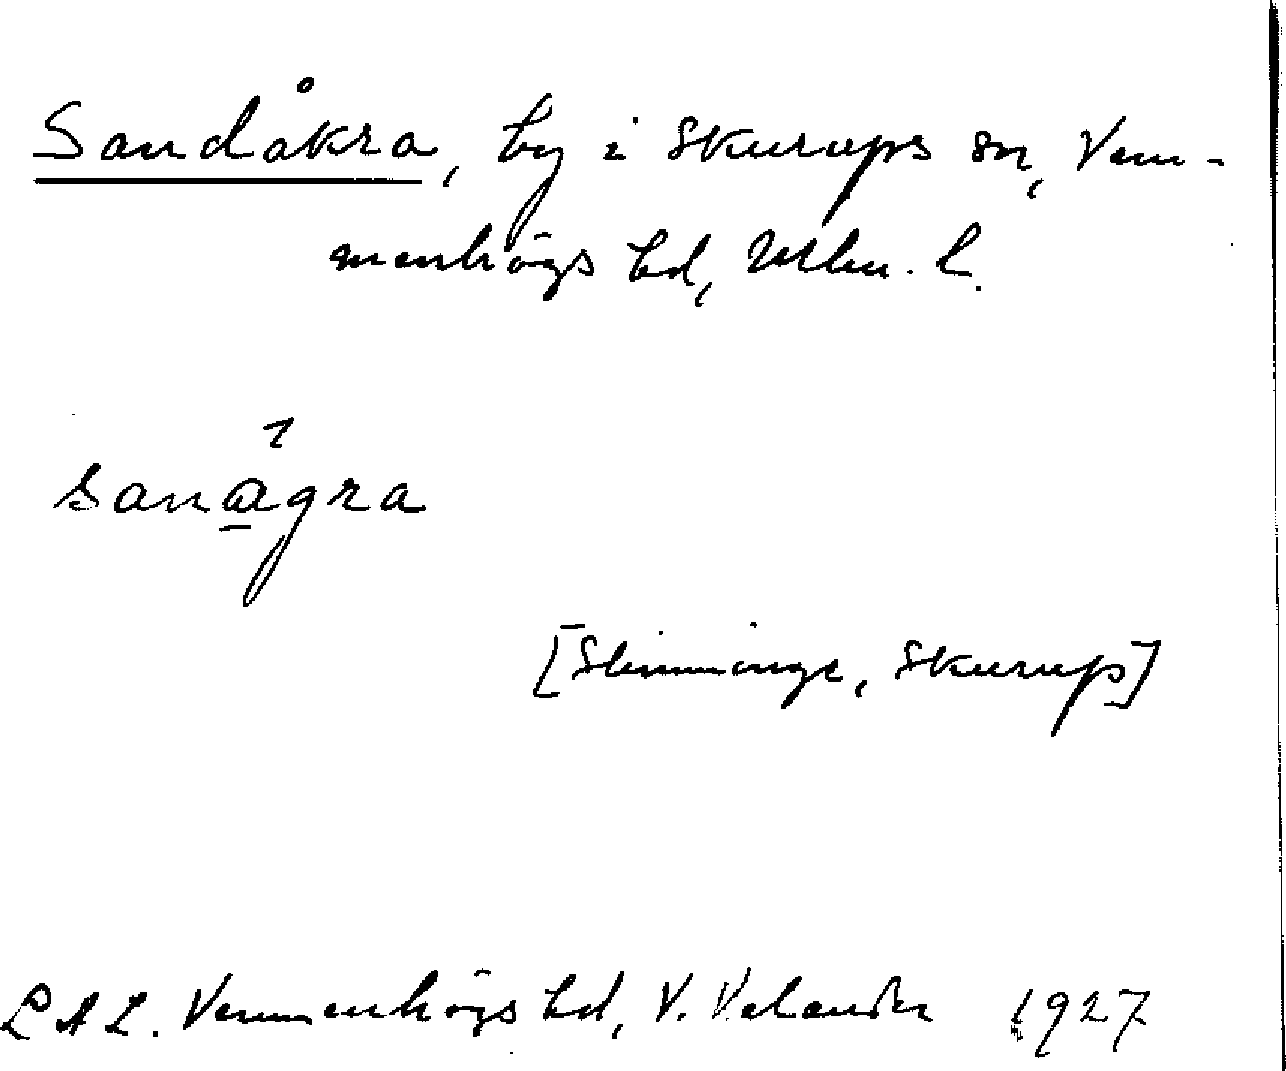 Sandåkra, by i Skurups sn, Vem-
menhögs hd, Mlm. l.
sanagra
[Slimminge, Skurup]
LAL. Vemmenhögs hd, V. Velander 1927